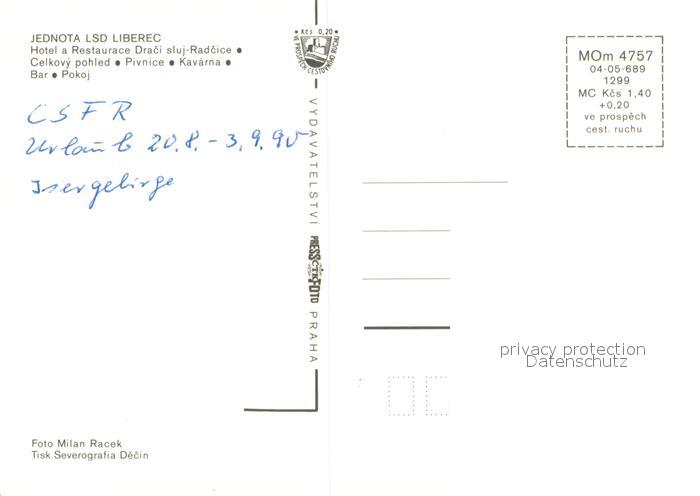 JEDNOTA LSD LIBEREC
Hotel a Restaurace Dračí sluj-Radčice ●
Celkový pohled ● Pivnice ● Kavárna ●
Bar ● Pokoj
CSFR
Urlaub 20.8. - 3.9.90
Isergebirge
Foto Milan Racek
Tisk Severografia Děčín
Kčs 0,20
VE PROSPĚCH CESTOVNÍHO RUCHU
VYDAVATELSTVÍ
PRESSFOTO
ČTK
PRAHA
MOm 4757
04-05-689
1299
MC Kčs 1,40
+0,20
ve prospěch
cest. ruchu
privacy protection
Datenschutz